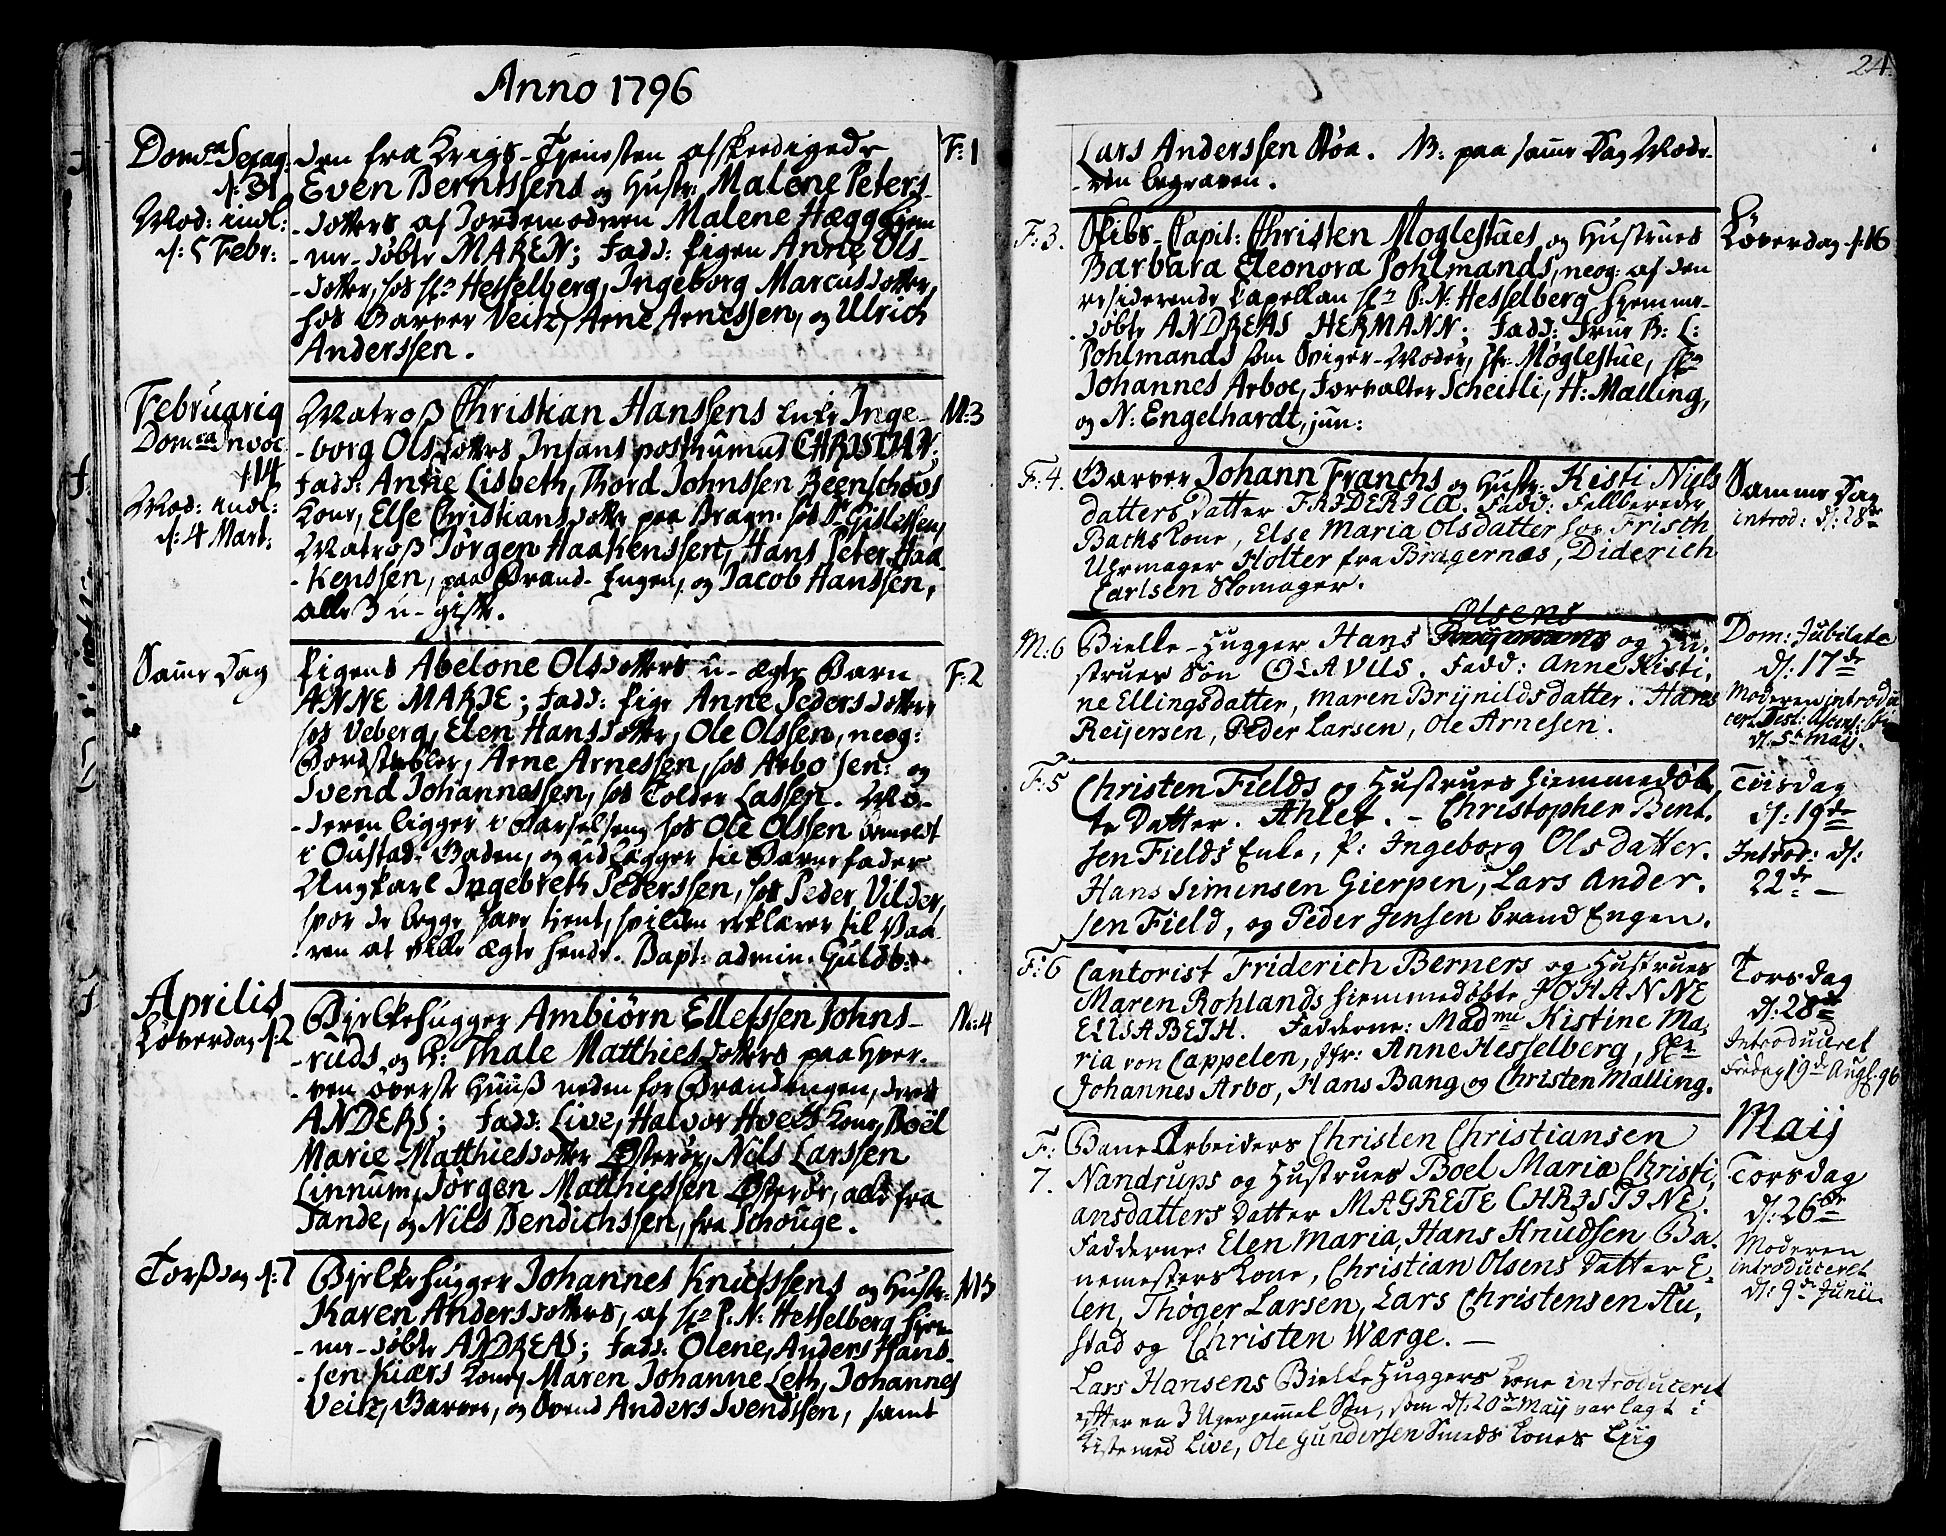 Anno 1796
Dom:ca Sexag:
d: 31
Mod: indl:
d: 5 Febr:
den fra Krigs-Tjenesten afskeedigede
Even Berntssens og Hustr: Malene Peters-
-dotters af Jordemoderen Malene Hægg hjem
-me-døbte MAREN; Fadd: Pigen Anne Ols-
-dotter, hos Hr Hesselberg, Ingeborg Marcusdotter,
hos Garver Veitz, Arne Arnessen, og Ulrich
Anderssen.
F: 1
Februarij
Dom:ca Invoc
d: 14
Mod: indl:
d: 4 Mart:
Matroß Christian Hanssens Enke Inge-
-borg Olsdotters Infans posthumus CHRISTIAN;
Fadd: Anne Lisbeth, Thord Johnssen Beenschovs
Kone, Else Christiansdotter paa Bragn: hos Sr Gislessens
Matroß Jørgen Haakenssen, Hans Peter Haa-
-kenssen, paa Brand-Engen, og Jacob Hanssen,
alle 3 u-gifte.
M: 3
Samme Dag
Pigens Abelone Olsdotters u-ægte Barn
ANNE MARIE; Fadd: Pige Anne Pedersdotter
hos Veberg, Elen Hansdotter, Ole Olssen, neog:
Bordstabler, Arne Arnessen, hos Arbo sen: og
Svend Johannessen, hos Tolder Lassen. Mo-
-deren ligger i Barselseng hos Ole Olssen Arneldt
i Oustad-Gaden, og udlægger til Barnefader
Ungkarl Ingebreth Pederssen, hos Peder Vilder,
hvor de begge have tient, hvilken erklærer til Vaa-
-ren at ville ægte hende. Bapt: admin. Guldb:
F: 2
Aprilis
Løverdag d: 2
Bjelkehugger Ambiørn Ellefssen Johns-
-ruds, og H: Thale Matthiesdotters paa Hver-
-ven øverste Huuß neden for Brandengen, deres
ANDERS; Fadd: Live, Halvor Hvets Kone, Boël
Marie Matthiesdotter Østerør, Nils Larssen
Linnum, Jørgen Matthiessen Østerør, alle fra
Sande, og Nils Bendichssen, fra Schouge.
M: 4
Torßdag d: 7
Bjelkehugger Johannes Knudssens og Hustr:
Karen Andersdotters, af Hr P: N: Hesselberg hjem-
-me-døbte ANDREAS; Fadd: Olene, Anders Hans-
-sen Kiærs Kone, Maren Johanne Leth, Johannes
Veitz, Garver, og Svend Anders Svendssen, samt
M: 5
24.
Lars Anderssen Røa. NB: paa samme Dag Mode-
-ren begraven.
F: 3.
Skibs-Capit: Christen Moglestues og Hustrues
Barbara Eleonora Pohlmands, neog: af den
residerende Capellan Hr P: N: Hesselberg hjemme-
-døbte ANDREAS HERMANN; Fadd: Frue B: C:
Pohlmands som Sviger-Moder, Jfr: Møglestue, Hr
Johannes Arboe, Forvalter Scheitli, H: Malling,
og N: Engelhardt, jun:
Løverdag d: 16
F: 4.
Garver Johann Franchs og Hustr: Kisti Niels
datters Datter FRIDERICA. Fadd: Fellberede
Bachs Kone, Else Maria Olsdatter hos Frisch
Uhrmager Holter fra Bragernæs, Diderich
Carlsen Skomager.
Samme Dag
introd: d: 28de
M: 6
Olsens
Bielke-Hugger Hans og Hu-
strues Søn OLAVUS. Fadd: Anne Kisti,
ne Ellingsdatter, Maren Brynildsdatter. Hans
Reijersen, Peder Larsen, Ole Arnesen.
Dom: Jubilate
d: 17de
Moderen introdu
cert Fest: Ascens:
d: 5te Maij.
F: 5
Christen Fields og Hustrues hiemmedøb,
te Datter. Ahlet. - Christopher Bent,
sen Fields Enke, P: Ingeborg Olsdatter.
Hans Simensen Gierpen, Lars Ander,
sen Field, og Peder Jensen brand Engen.
Tiisdag
d: 19de
Introd: d:
22de —
F: 6
Cantorist Friderich Berners og Hustrues
Maren Rohlands hiemmedøbte JOHANNE
ELISABETH. Fadderne: Madme Kistine Ma,
ria von Cappelen, Jfr: Anne Hesselberg, Hr
Johannes Arbo, Hans Bang og Christen Malling.
Torsdag
d: 28de
Introduceret
Fredag 19de Aug. 96
F:
7.
Bane Arbeiders Christen Christiansen
Nandrups og Hustrues Boel Maria Christi,
ansdatters Datter MAGRETE CHRISTINE.
Fadderne: Elen Maria, Hans Knudsen Ba,
nemesters Kone, Christian Olsens Datter E,
len, Thøger Larsen, Lars Christensen Au,
stad og Christen Wærge. —
Maij
Torsdag
d: 26de
Moderen
introduceret
d: 9de Junii
Lars Hansens Bielkehuggers Kone introduceret
efter en 3 Uger gammel Søn, som d: 20de Maij var lagt i
Kiste med Live, Ole Gundersen Smeds Kones Liig